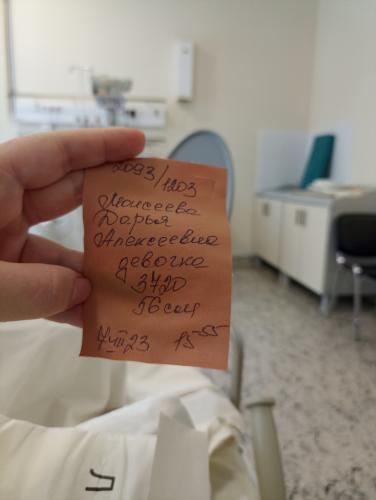 2093/1203
Моисеева
Дарья
Алексеевна
девочка
3720
56 см
7.VIII.23 15-55
Л